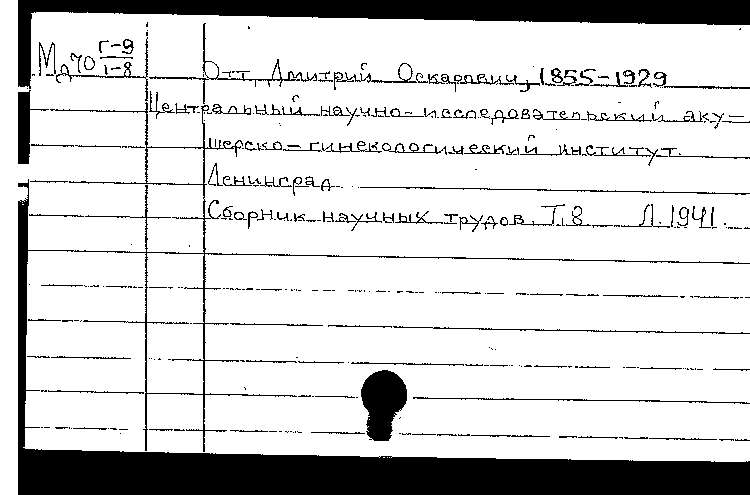 Мд70 Г-9/1-8
Отт, Дмитрий Оскарович, 1855-1929
Центральный научно-исследовательский аку-
шерско-гинекологический институт.
Ленинград
Сборник научных трудов. Т.8 Л.1941.